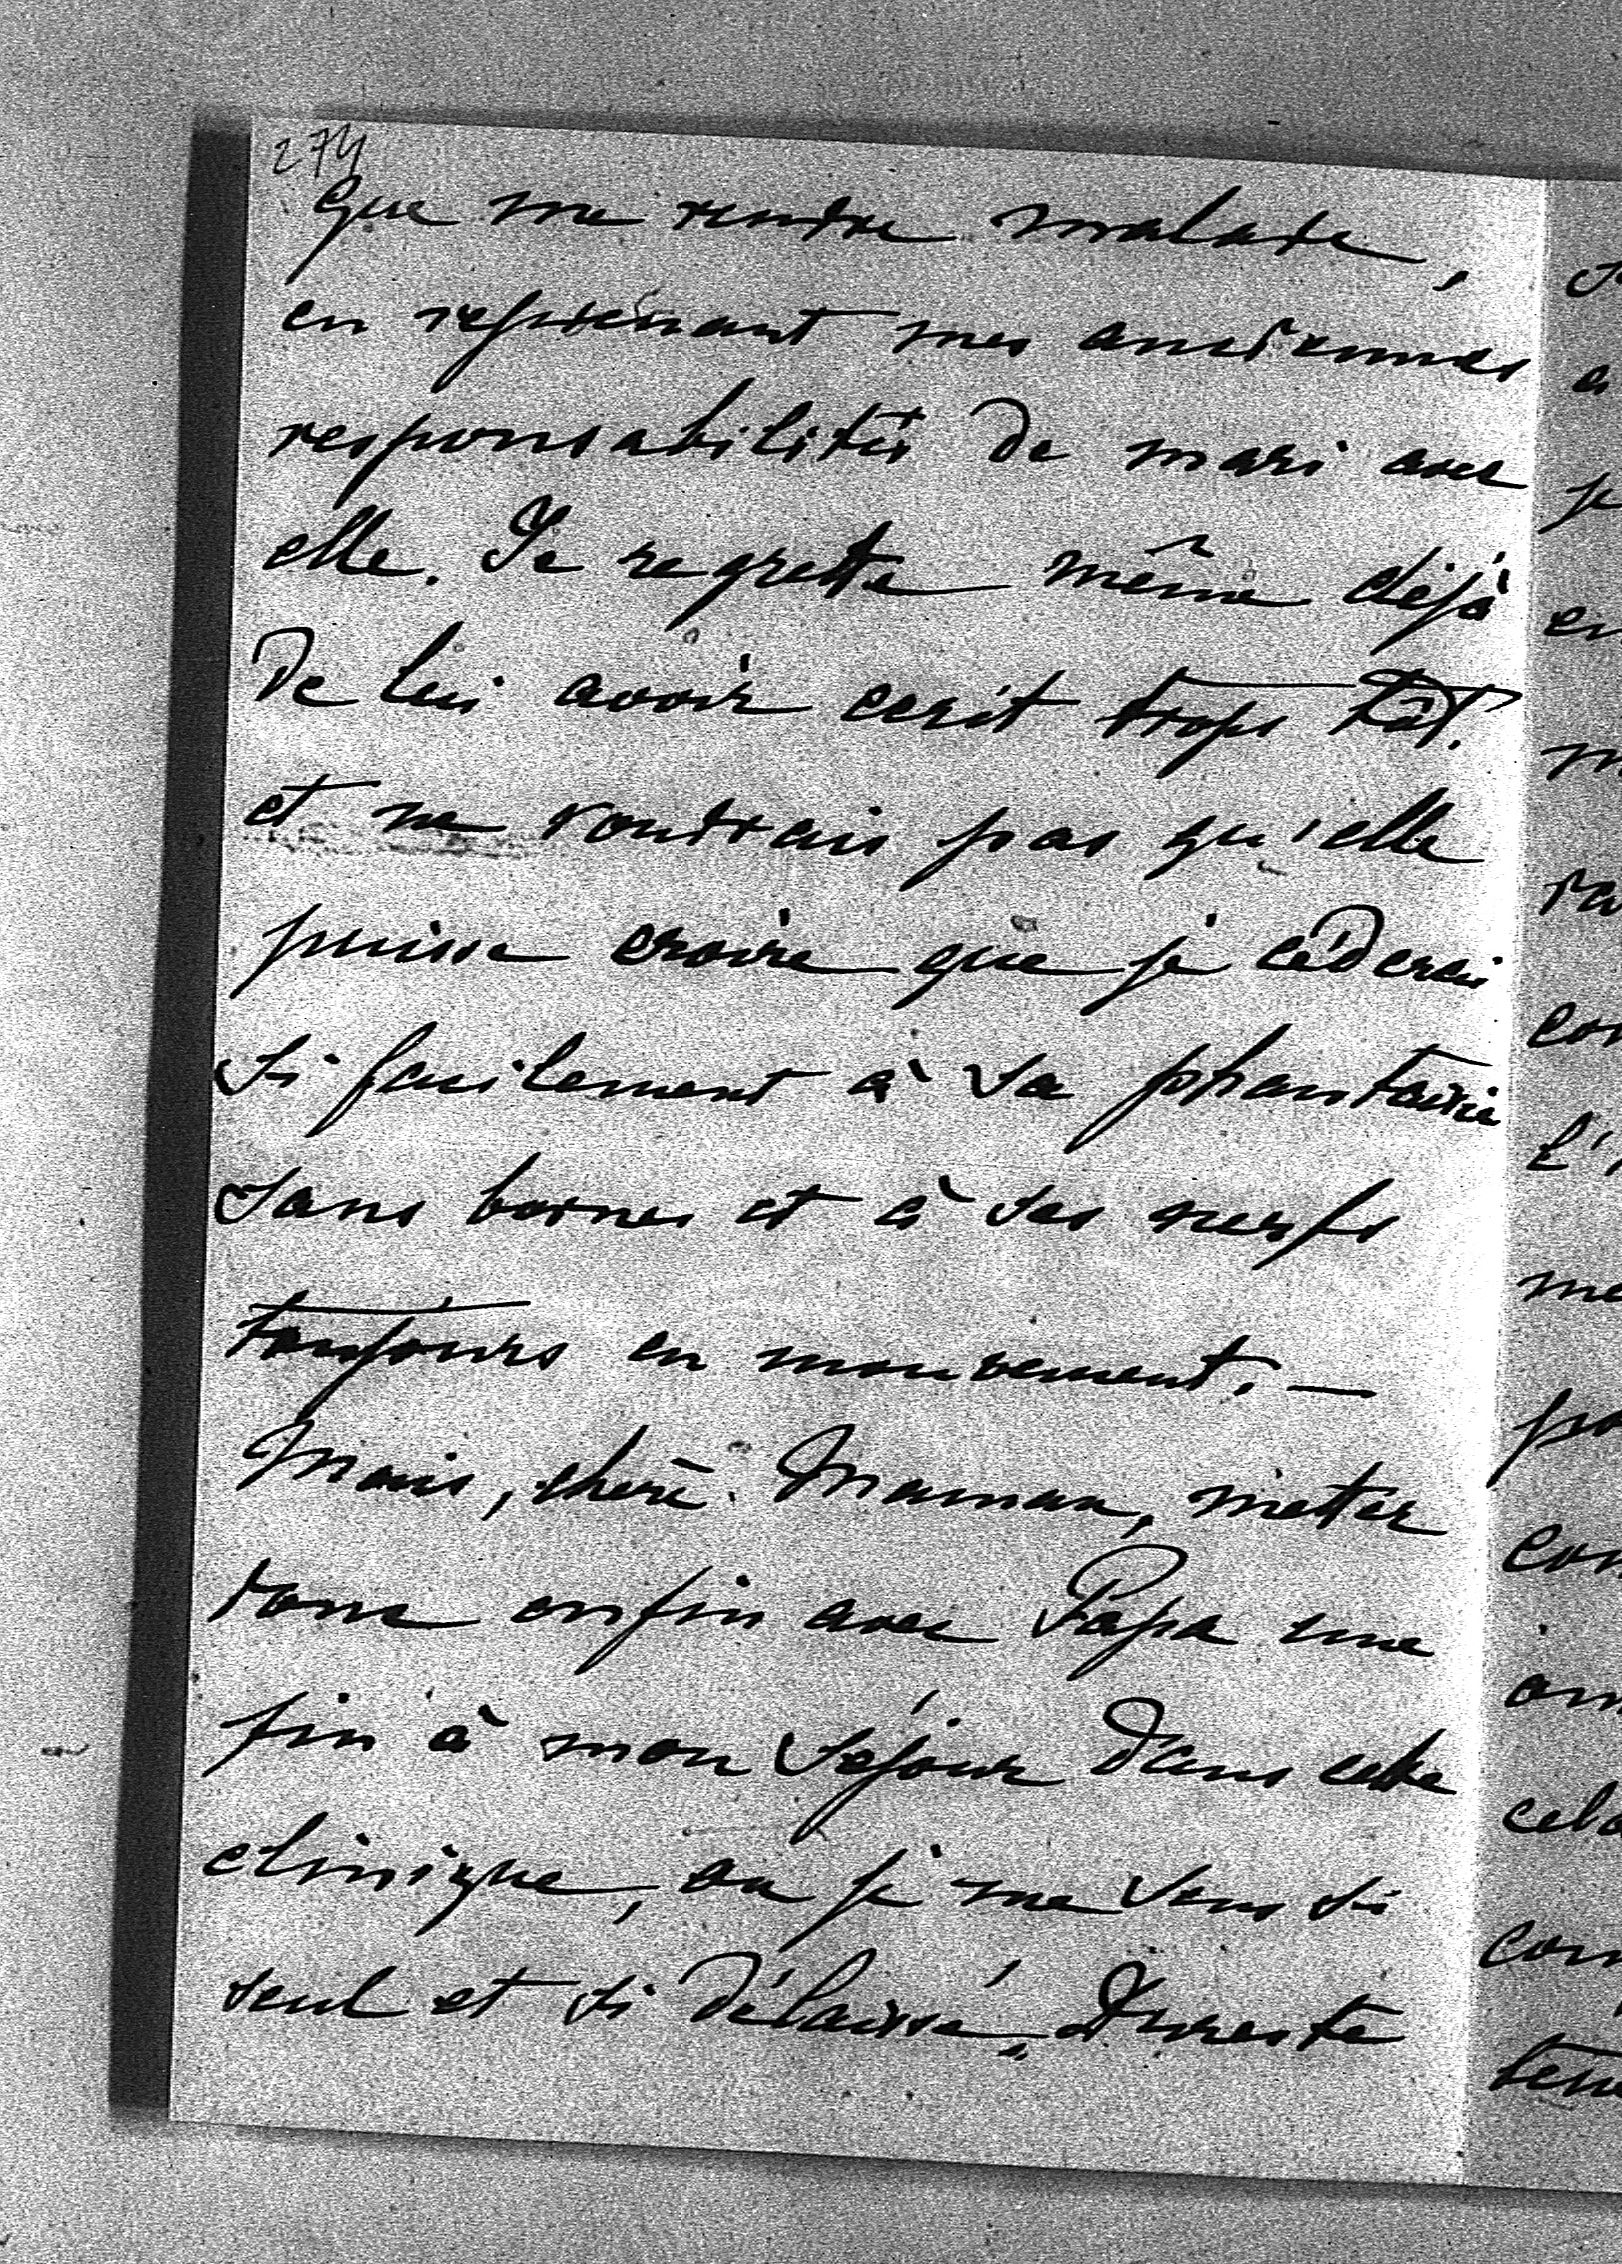 274
que me rendre malade,
en reprenant mes anciennes
responsabilités de mari avec
elle. Je regrette même déjà
de lui avoir ecrit trop tôt.
et ne voudrais pas qu'elle
puisse croire que je cèderai
si facilement à sa phantaisie
sans bornes et à ses nerfs
toujours en mouvement. —
Mais, chère Maman, mettez
donc enfin avec Papa une
fin à mon séjour dans cette
clinique, ou je me sens si
seul et si délaissé. Dureste